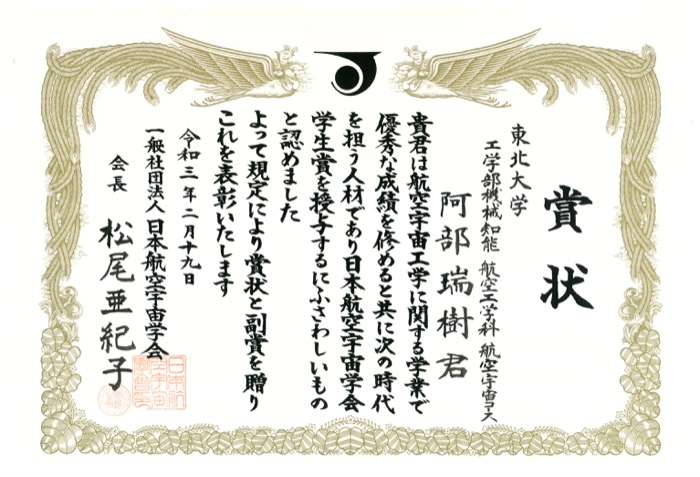 賞状
東北大学
工学部機械知能 航空工学科 航空宇宙コース
阿部瑞樹君
貴君は航空宇宙工学に関する学業で
優秀な成績を修めると共に次の時代
を担う人材であり日本航空宇宙学会
学生賞を授与するにふさわしいもの
と認めました
よって規定により賞状と副賞を贈り
これを表彰いたします
令和三年二月十九日
一般社団法人 日本航空宇宙学会
会長 松尾亜紀子